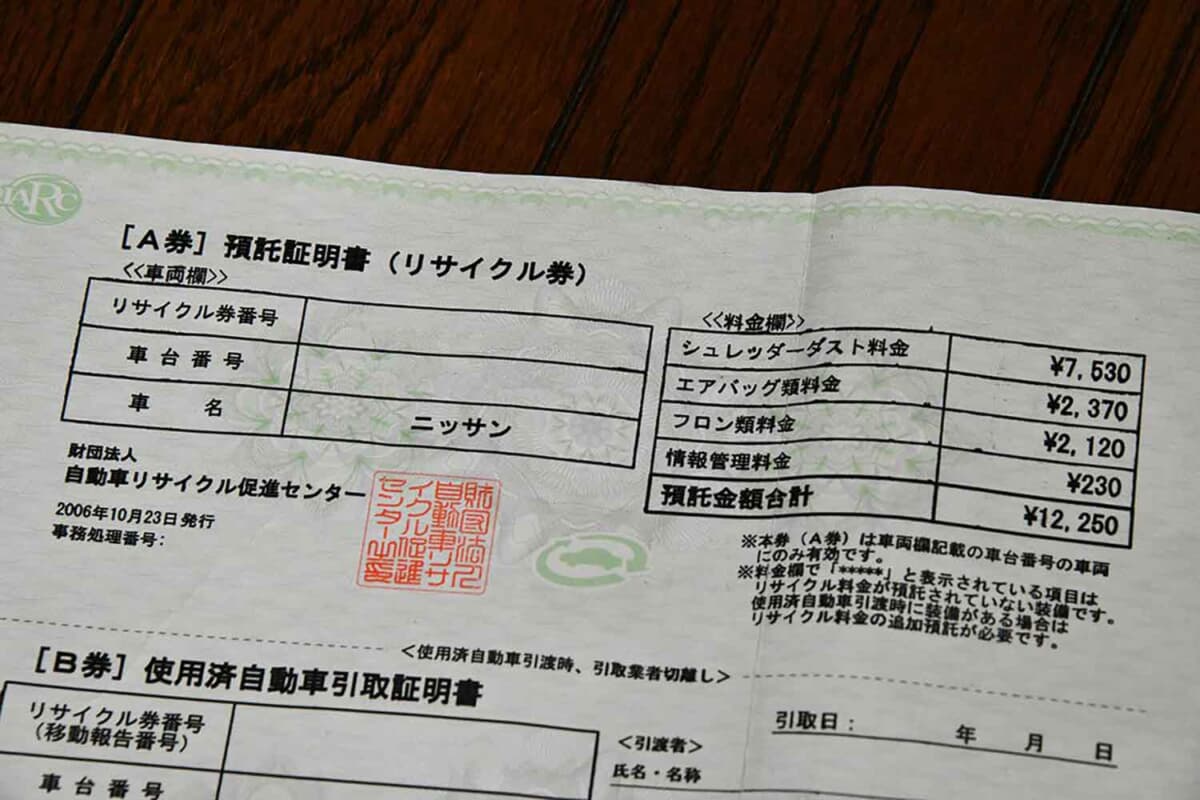 JARC
[A券] 預託証明書（リサイクル券）
<<車両欄>>
リサイクル券番号
車台番号
車名 ニッサン
財団法人
自動車リサイクル促進センター
2006年10月23日発行
事務処理番号：
財団法人
自動車リサ
イクル促進
センター
<<料金欄>>
シュレッダーダスト料金 ¥7,530
エアバッグ類料金 ¥2,370
フロン類料金 ¥2,120
情報管理料金 ¥230
預託金額合計 ¥12,250
※本券（A券）は車両欄記載の車台番号の車両
にのみ有効です。
※料金欄で「*****」と表示されている項目は
リサイクル料金が預託されていない装備です。
使用済自動車引渡時に装備がある場合は
リサイクル料金の追加預託が必要です。
<使用済自動車引渡時、引取業者切離し>
[B券] 使用済自動車引取証明書
リサイクル券番号
（移動報告番号）
車台番号
引取日： 年 月 日
<引渡者>
氏名・名称